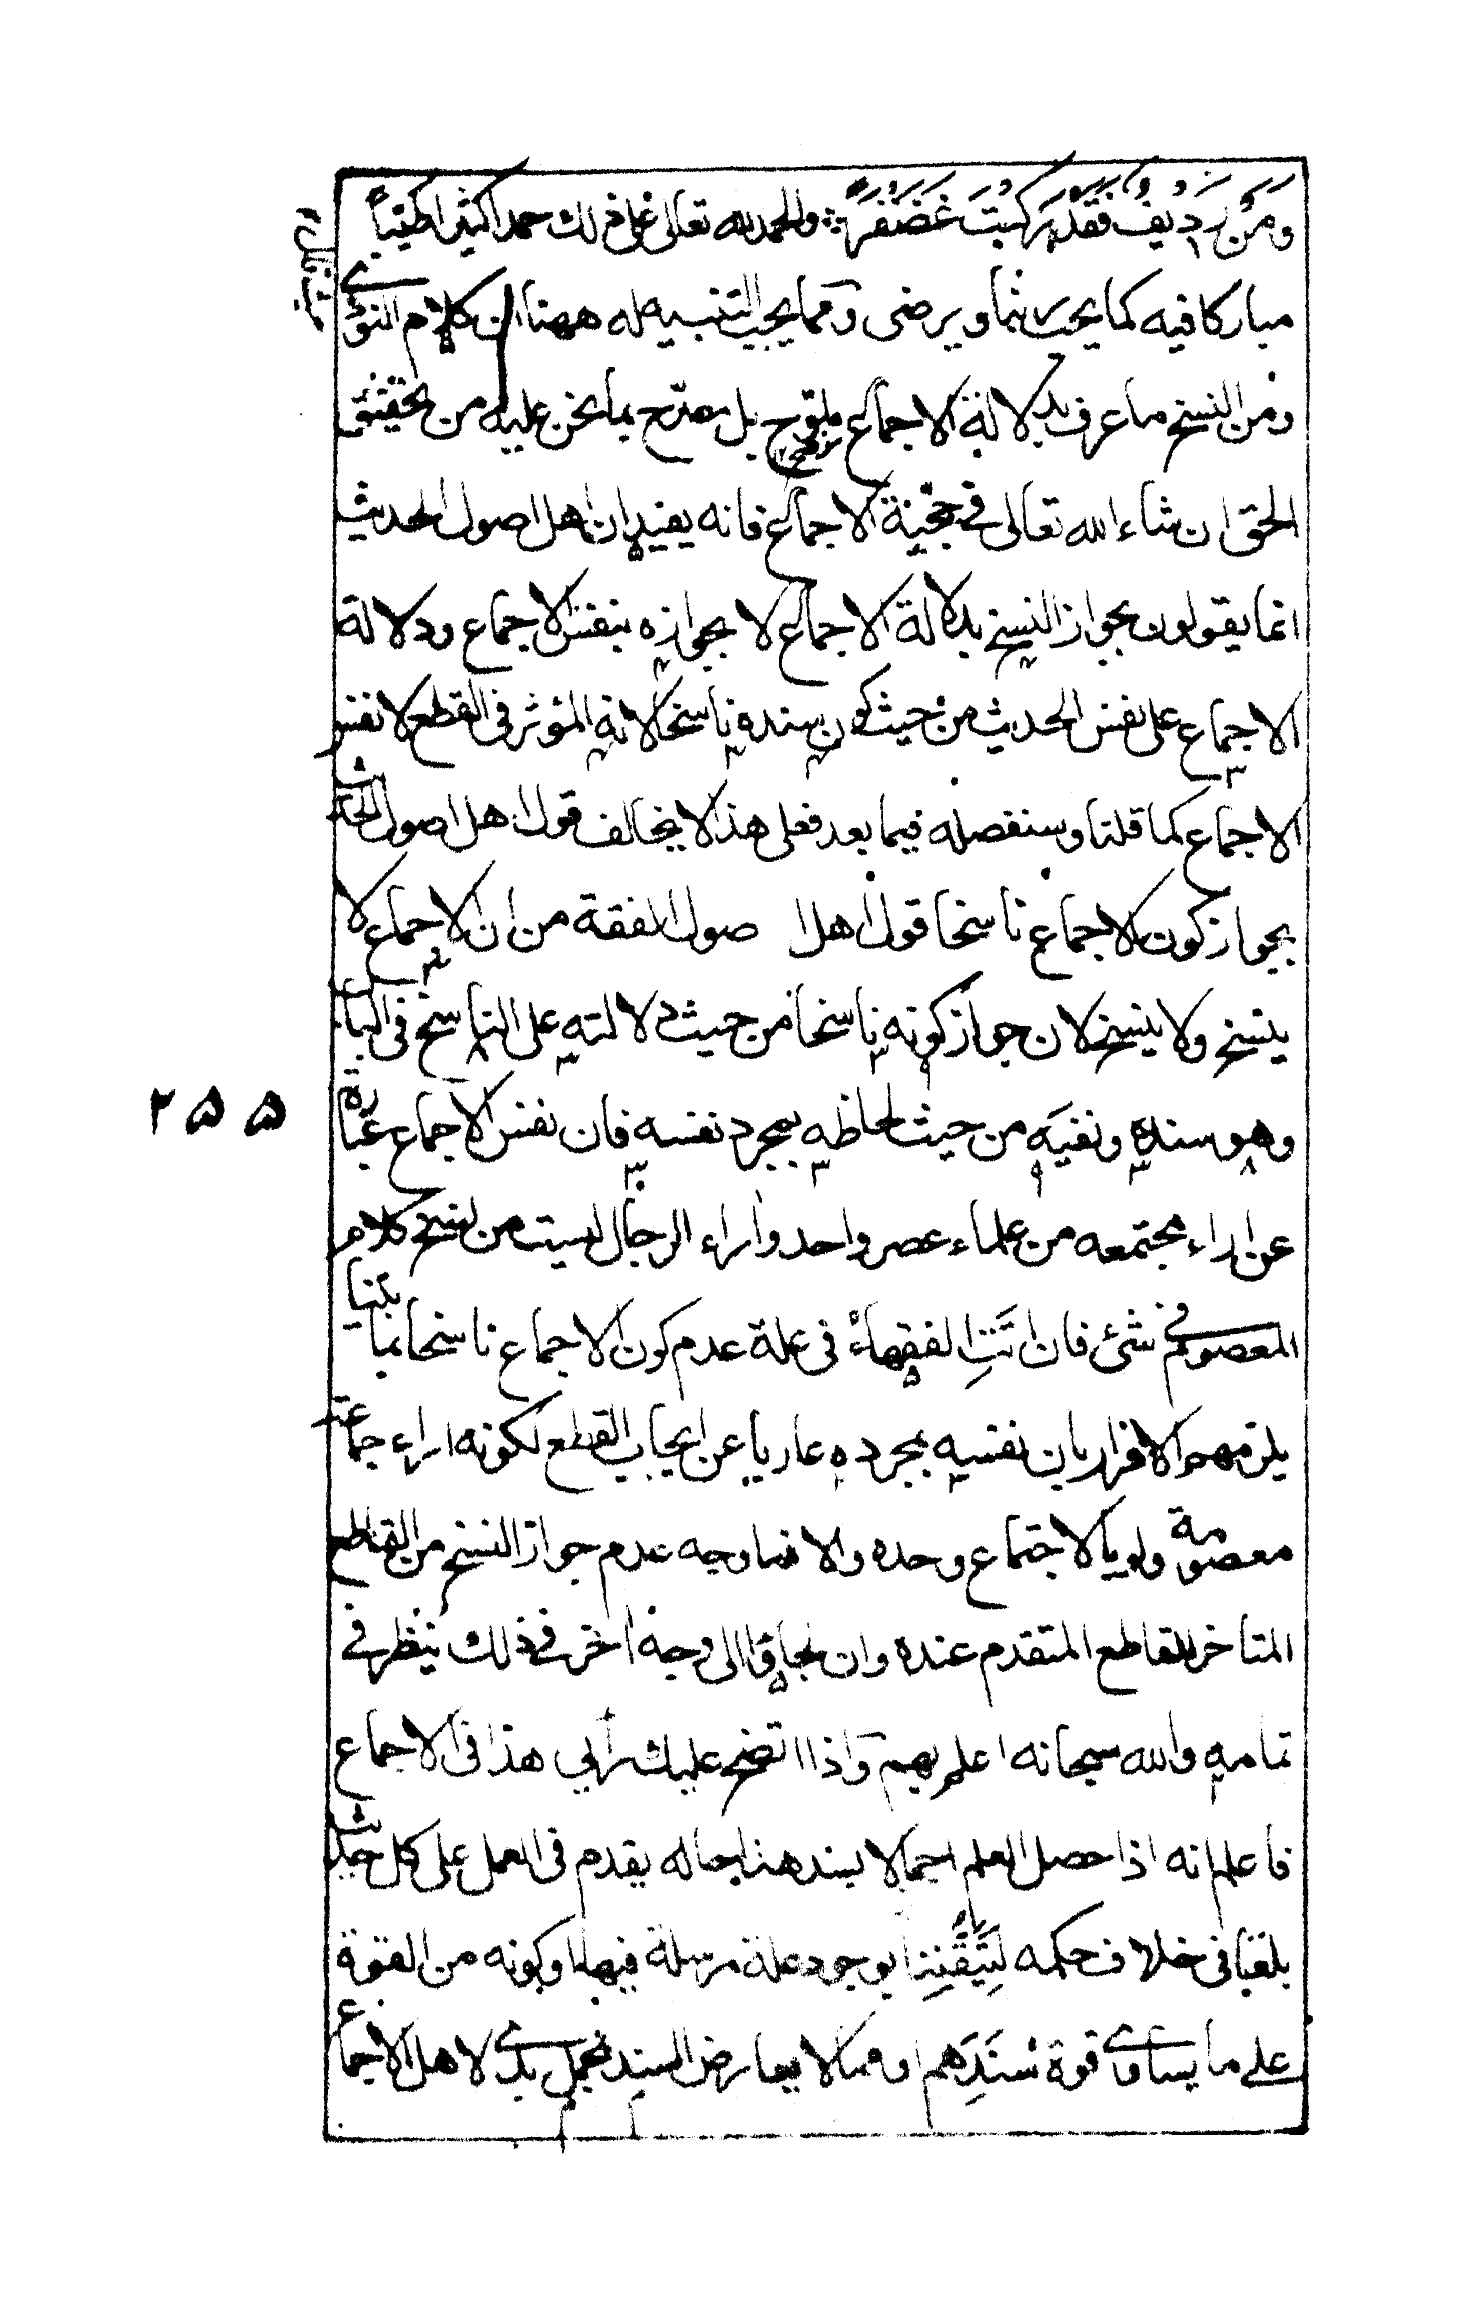 وَمَنْ رَدِيفٌ فَقَدْ رَكِبْتَ غَضَنْفَرًا والحمد لله تعالى على ذلك حمدا كثيرا طيبا
مباركا فيه كما يحب ربنا ويرضى ومما يجب التنبيه له ههنا ان كلام النووي
ومن النسخ ما عرف بدلالة الاجماع ملوح بل مصرح بما نحن عليه من تحقيق
الحق ان شاء الله تعالى في حجية الاجماع فانه يفيد ان اهل اصول الحديث
انما يقولون بجواز النسخ بدلالة الاجماع لا بجوازه بنفس الاجماع ودلالة
الاجماع على نفس الحديث من حيث كون سنده ناسخا لانه المؤثر في القطع لا نفس
الاجماع كما قلنا وسنفصله فيما بعد فعلى هذا لا يخالف قول اهل اصول الحديث
بجواز كون الاجماع ناسخا قول اهل اصول الفقه من ان الاجماع لا
ينسخ ولا ينسخ لان جواز كونه ناسخا من حيث دلالته على الناسخ في الباب
وهو سنده ونفيه من حيث لحاظه بمجرد نفسه فان نفس الاجماع عبارة
عن اراء مجتمعه من علماء عصر واحد واراء الرجال ليست من نسخ كلام
المعصوم في شئ فان اتت الفقهاء في علة عدم كون الاجماع ناسخا بما بينا
يلزمهم الاقرار بان نفسه بمجرده عاريا عن ايجاب القطع لكونه اراء جماعة غير
معصومة ولو بالاجتماع وحده والا فما وجه عدم جواز النسخ من القاطع
المتأخر للقاطع المتقدم عنده وان لجاؤا الى وجه اخر في ذلك ينظر في
تمامه والله سبحانه اعلم بهم واذا اتضح عليك رأيي هذا في الاجماع
فاعلم انه اذا حصل العلم اجمالا بسند هذا حاله يقدم في العمل على كل حديث
بلغنا في خلاف حكمه لتيقننا بوجود علة مرسلة فيها وكونه من القوة
على ما يساوي قوة سَنَدِهم او مما لا يعارض السند مجمل بدى لاهل الاجماع
٢٥٥